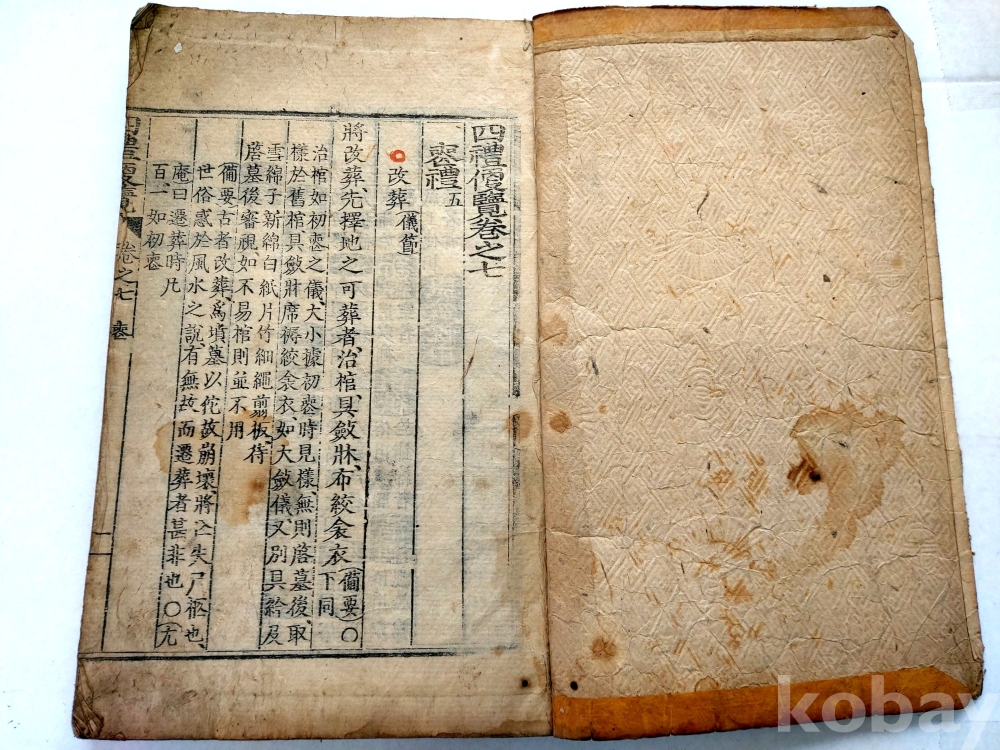 四禮便覽卷之七
喪禮五
改葬 儀節
將改葬、先擇地之可葬者、治棺、具斂牀、布絞衾衣 備要〇下同
治棺如初喪之儀、大小據初喪時見樣、無則啓墓後、取
樣於舊棺具斂牀席褥絞衾衣、如大斂儀、又別具給及
雪綿子新綿白紙片竹細繩翦板、待
啓墓後審視如不易棺則並不用
備要古者改葬、爲墳墓以佗故崩壞、將亡失尸柩也、
世俗惑於風水之說、有無故、而遷葬者甚非也〇尤
庵曰遷葬時凡
百、如初喪
四禮便覽 卷之七 喪 一
kobay